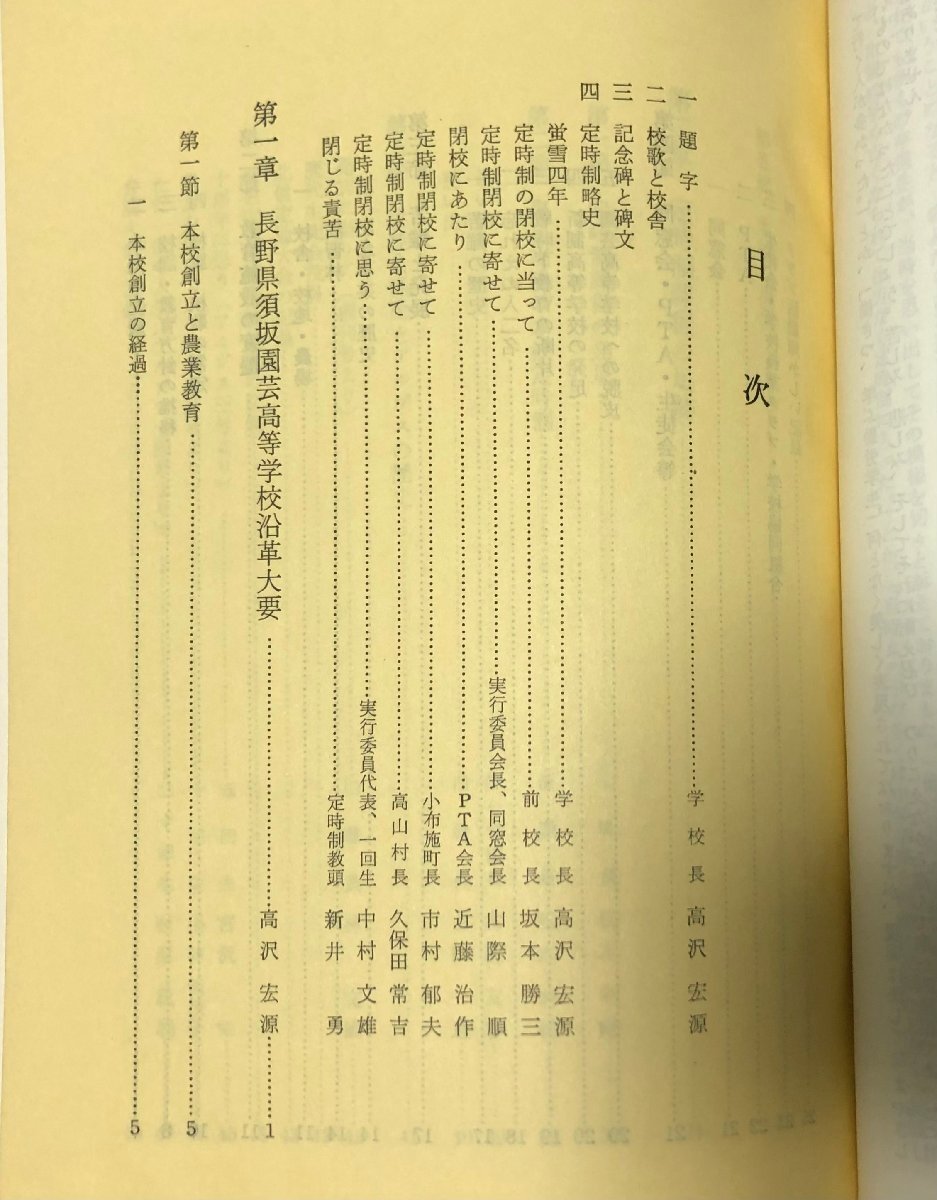 目次
一 題字……学校長 高沢宏源
二 校歌と校舎
三 記念碑と碑文
四 定時制略史
蛍雪四年……学校長 高沢宏源
定時制の閉校に当って……前校長 坂本勝三
定時制閉校に寄せて……実行委員会長、同窓会長 山際順
閉校にあたり……PTA会長 近藤治作
定時制閉校に寄せて……小布施町長 市村郁夫
定時制閉校に寄せて……高山村長 久保田常吉
定時制閉校に思う……実行委員代表、一回生 中村文雄
閉じる責苦……定時制教頭 新井勇
第一章 長野県須坂園芸高等学校沿革大要……高沢宏源……1
第一節 本校創立と農業教育……5
一 本校創立の経過……5